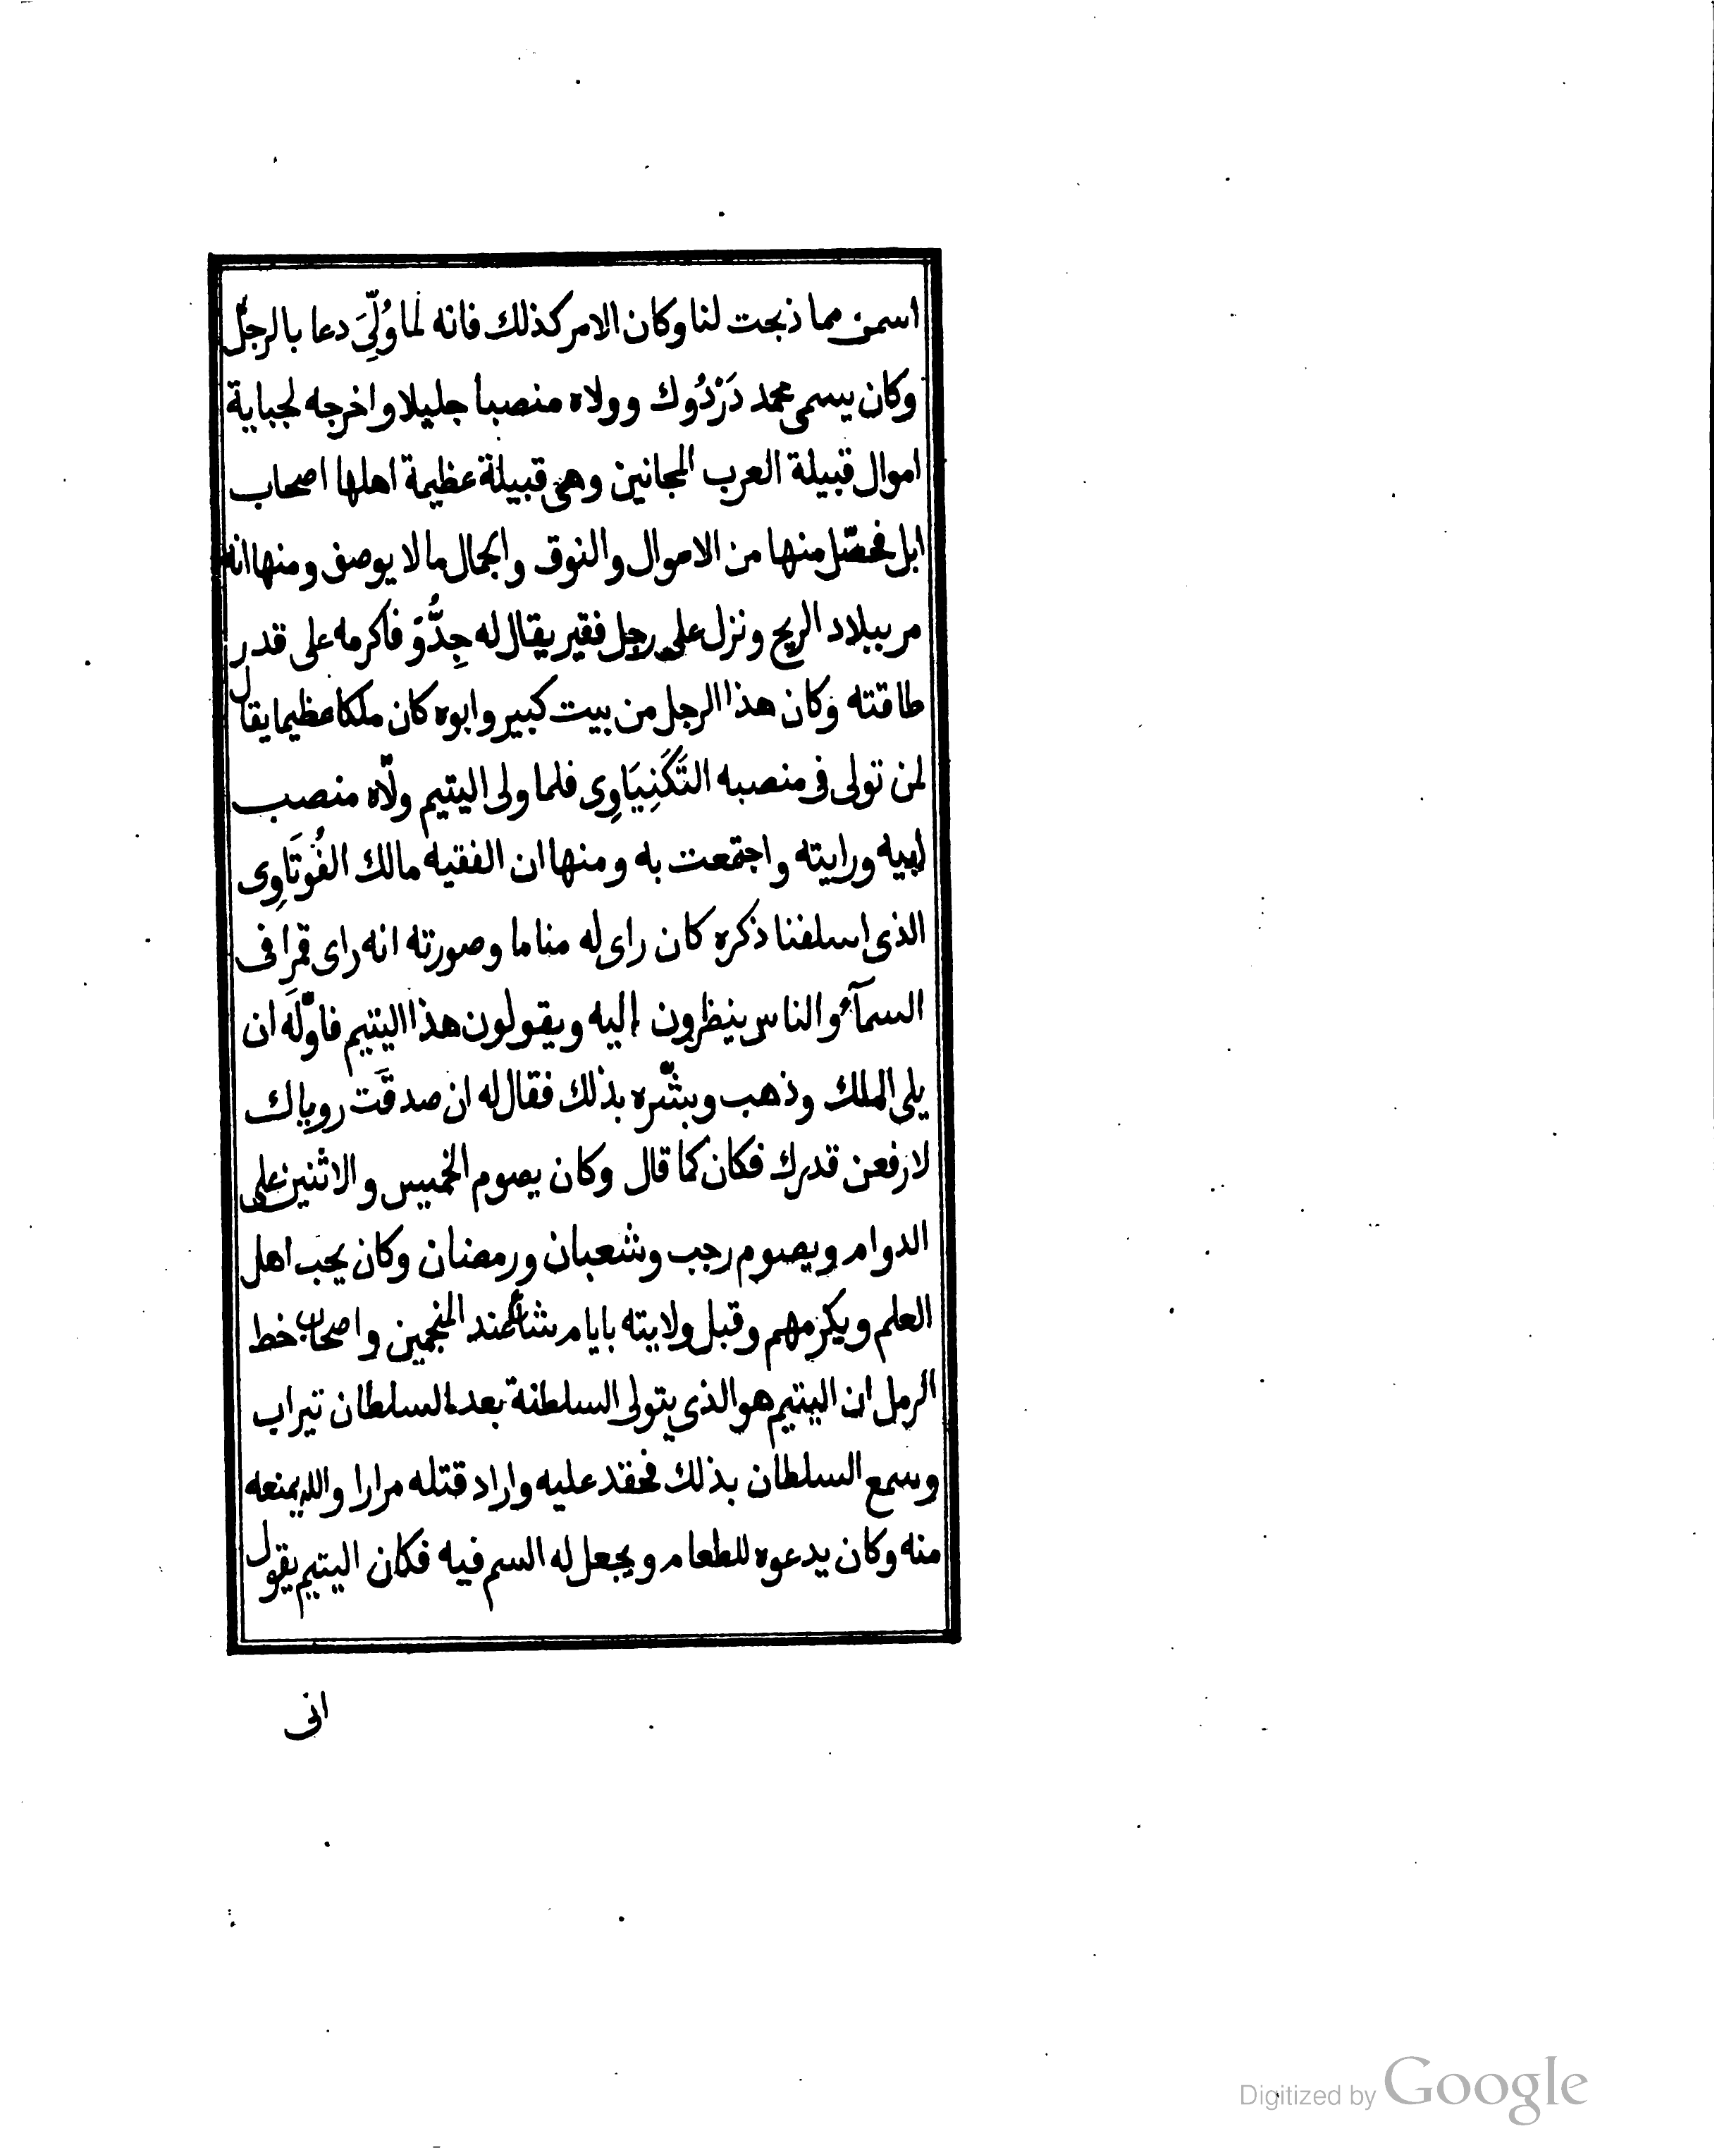 اسمن مما ذبحت لنا وكان الامر كذلك فانه لما وُلِّىَ دعا بالرجل
وكان يسمى محمد دَرْدُوك وولاه منصبا جليلا واخرجه لجباية
اموال قبيلة العرب المجانين وهى قبيلة عظيمة اهلها اصحاب
ابل فحصّل منها من الاموال والنوق والجمال ما لا يوصف ومنها انه
مر ببلاد الريح ونزل على رجل فقير يقال له جِدُّوْ فاكرمه على قدر
طاقته وكان هذا الرجل من بيت كبير وابوه كان ملكا عظيما يقال
لمن تولى فى منصبه التَكَنِيَاوِى فلما ولى اليتيم ولّاه منصب
ابيه ورايته واجتمعت به ومنها ان الفقيه مالك الفُوتَاوِى
الذى اسلفنا ذكره كان راى له مناما وصورته انه راى قمرا فى
السمآء والناس ينظرون اليه ويقولون هذا اليتيم فاوّله ان
يلى الملك وذهب وبشّره بذلك فقال له ان صدقَت روياك
لارفعن قدرك فكان كما قال وكان يصوم الخميس والاثنين على
الدوام ويصوم رجب وشعبان ورمضان وكان يحب اهل
العلم ويكرمهم وقبل ولايته بايام شاع عند المنجمين واصحاب خط
الرمل ان اليتيم هو الذى يتولى السلطنة بعد السلطان تيراب
وسمع السلطان بذلك فحقد عليه واراد قتله مرارا والله يمنعه
منه وكان يدعوه للطعام ويجعل له السم فيه فكان اليتيم يقول
انى
Digitized by Google